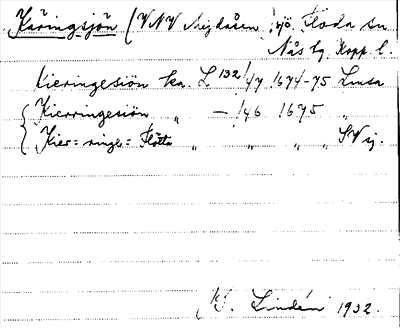 Käringsjön (VNV Mejdåsen) sjö. Floda sn
Nås hg. Kopp. l.
Kieringesiön ka. L 132/47 1674-75 Lmsa
Kierringesiön „ — /46 1675 „
Kier=ringe=Flötte „ „ „ „ SVsj.
Lindén 1932.